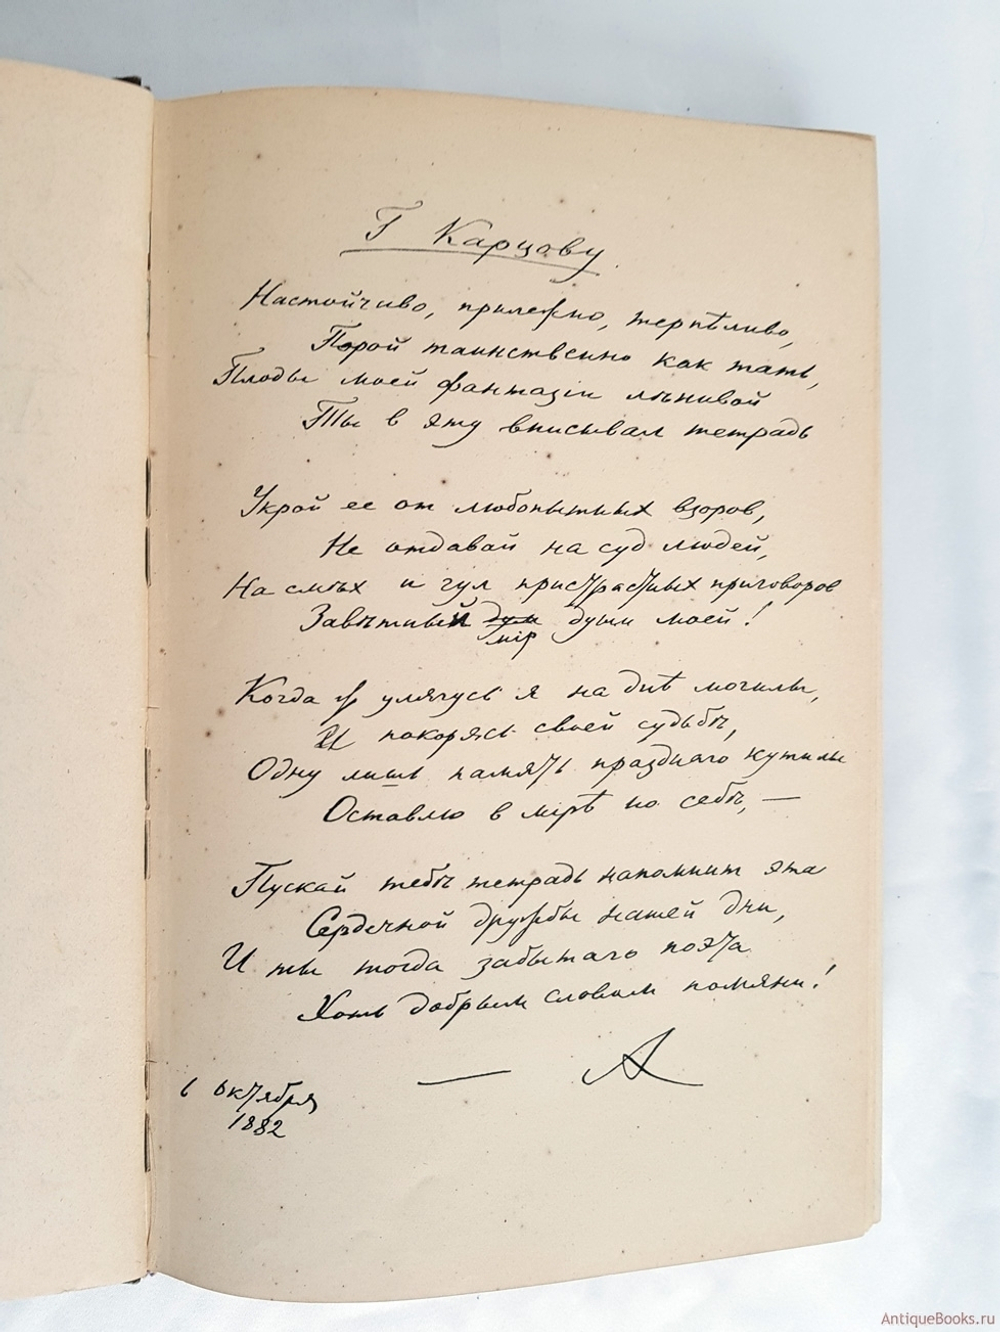 Г Карцову.
Настойчиво, прилежно, терпѣливо,
Порой таинственно как тать,
Плоды моей фантазіи лѣнивой
Ты в эту вписывал тетрадь
Укрой ее от любопытных взоров,
Не отдавай на суд людей,
На смѣх и гул пристрастных приговоров
Завѣтный дум души моей!
мір
Когда ж улягусь я на днѣ могилы,
И покорясь своей судьбѣ,
Одну лишь память праздного кутилы
Оставлю в мірѣ по себѣ, —
Пускай тебѣ тетрадь напомнит эта
Сердечной дружбы нашей дни,
И ты тогда забытаго поэта
Хоть добрым словом помяни!
— А
6 октября
1882
AntiqueBooks.ru